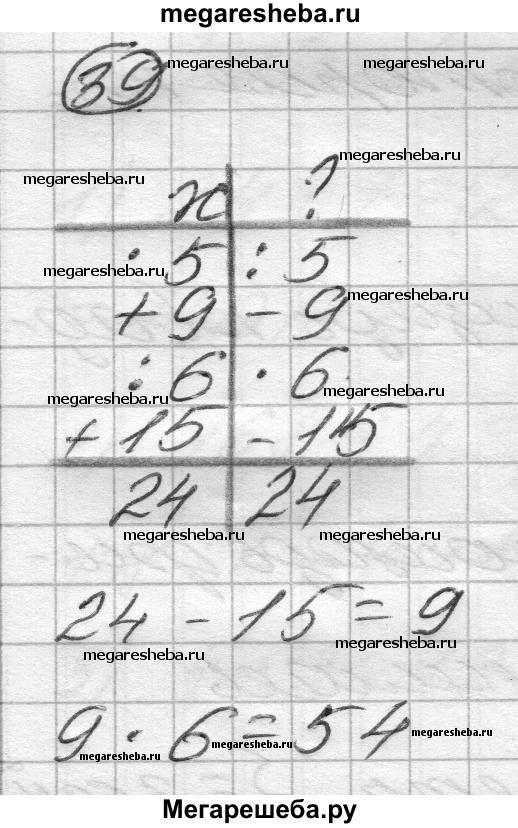 megaresheba.ru
39
megaresheba.ru megaresheba.ru
megaresheba.ru
megaresheba.ru
x ?
: 5 : 5
megaresheba.ru
+ 9 - 9
megaresheba.ru
: 6 · 6
megaresheba.ru megaresheba.ru
+ 15 - 15
24 24
megaresheba.ru megaresheba.ru
24 - 15 = 9
megaresheba.ru megaresheba.ru
9 · 6 = 54
megaresheba.ru megaresheba.ru megaresheba.ru
Мегарешеба.ру